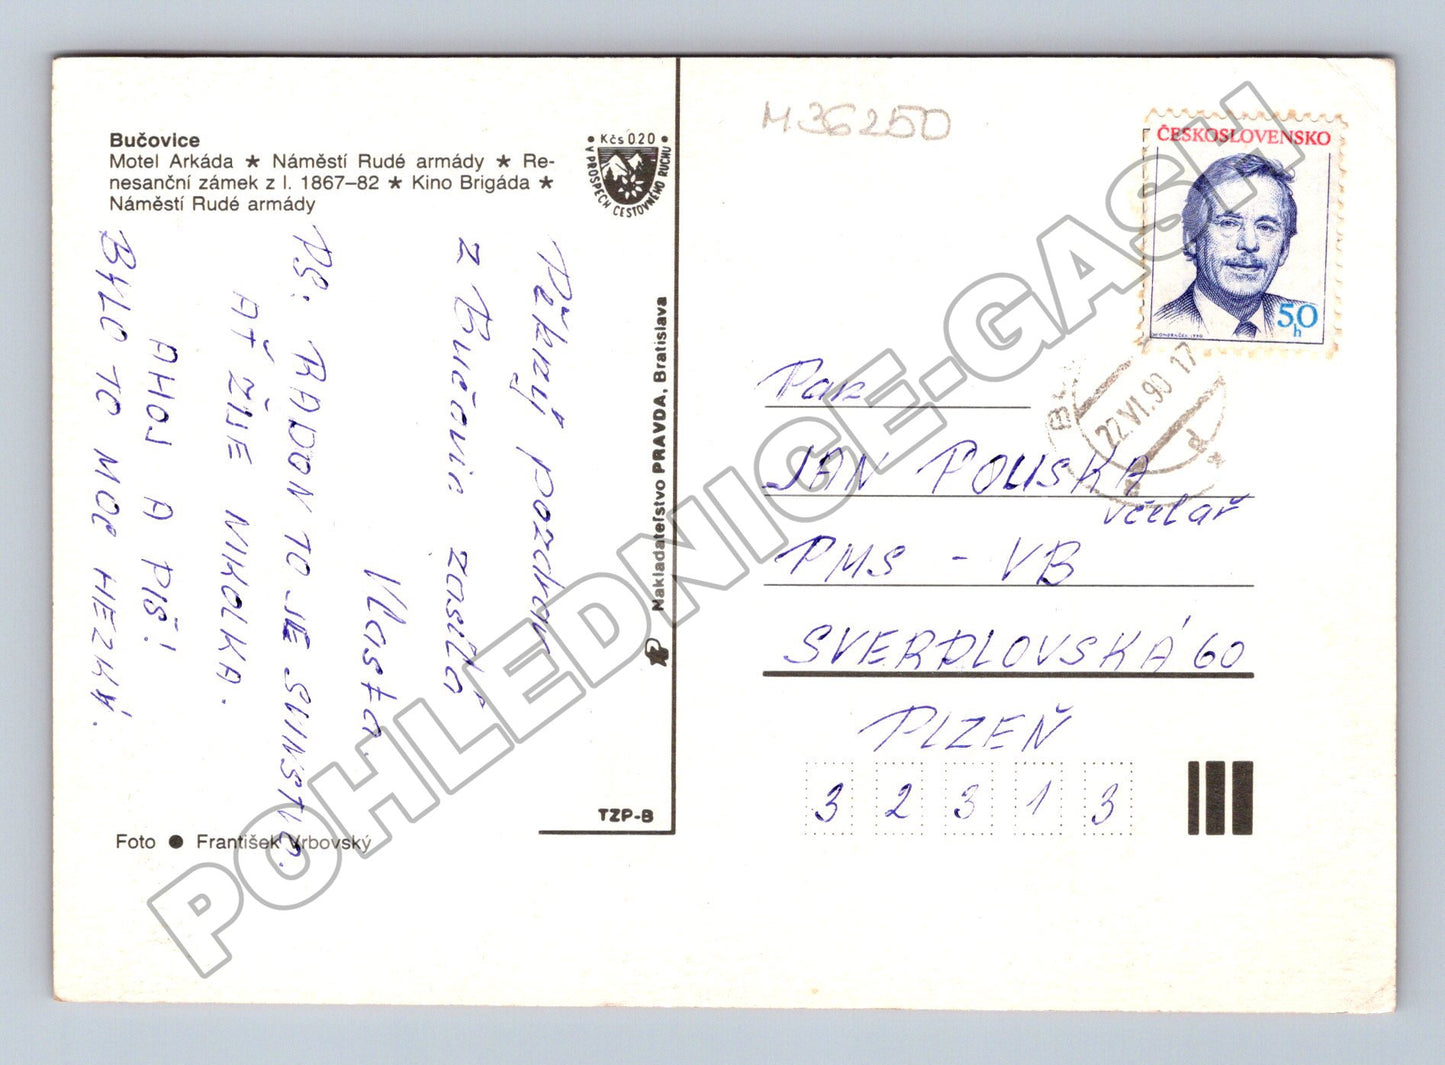 Bučovice
Motel Arkáda ★ Náměstí Rudé armády ★ Re-
nesanční zámek z l. 1867–82 ★ Kino Brigáda ★
Náměstí Rudé armády
Kčs 0.20
V PROSPECH CESTOVNÉHO RUCHU
Pěkný pozdrav
z Bučovic zasílá
Vlasta.
PS. RADON TO JE SVINSTVO.
AŤ ŽIJE NIKOLKA.
AHOJ A PIŠ!
BYLO TO MOC HEZKÝ.
Foto ● František Vrbovský
Nakladateľstvo PRAVDA, Bratislava
TZP-B
M36250
ČESKOSLOVENSKO
50
h
22.VI.90 17
Pan
JAN POLISKA
včelař
PMS - VB
SVERDLOVSKÁ 60
PLZEŇ
3 2 3 1 3
POHLEDNICE-GASH